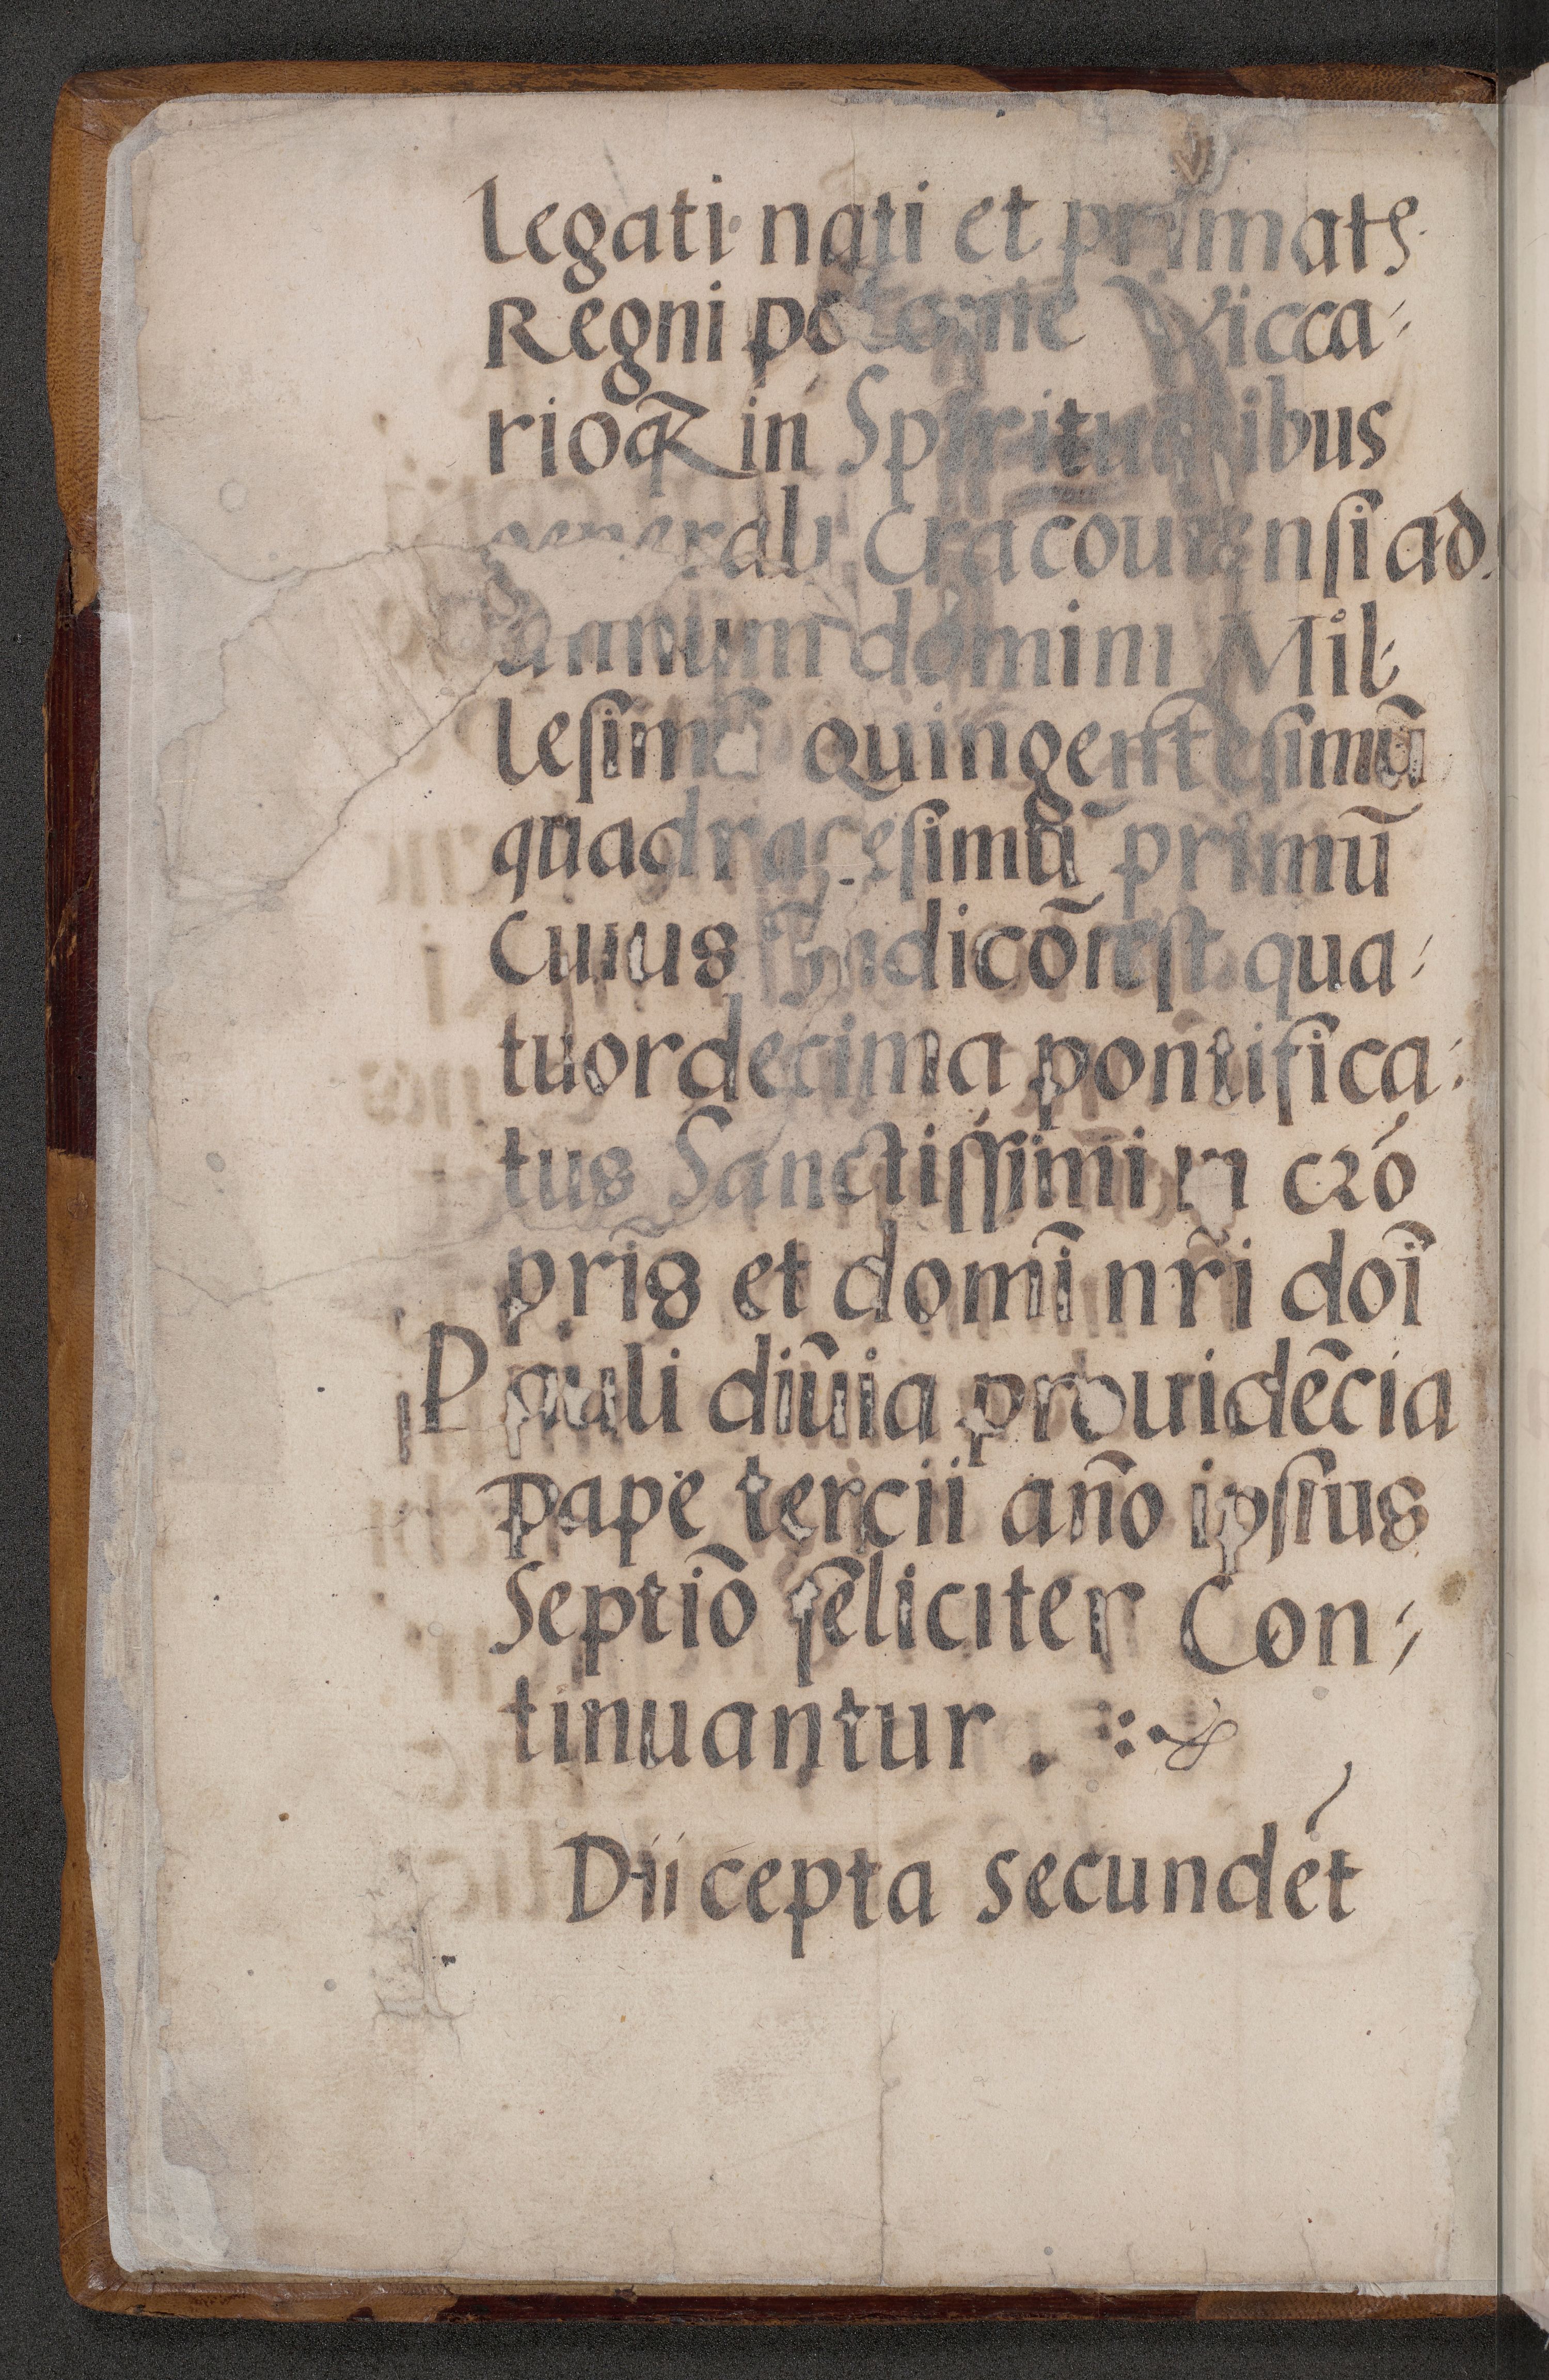 legati nati et primatꝭ
Regni polonie Vicca-
rioqꝫ in Spiritualibus
generali Cracouiensi ad
annum domini Mil-
lesimū quingentesimū
quadragesimū primū
Cuius Indicō est qua-
tuordecima pontifica-
tus Sanctissimi in cró
pris̄ et domī nr̄i doī
Pauli diūia prouidēcia
pape tercii año ipsius
Septiō feliciter Con-
tinuantur .
Dii cepta secundēt